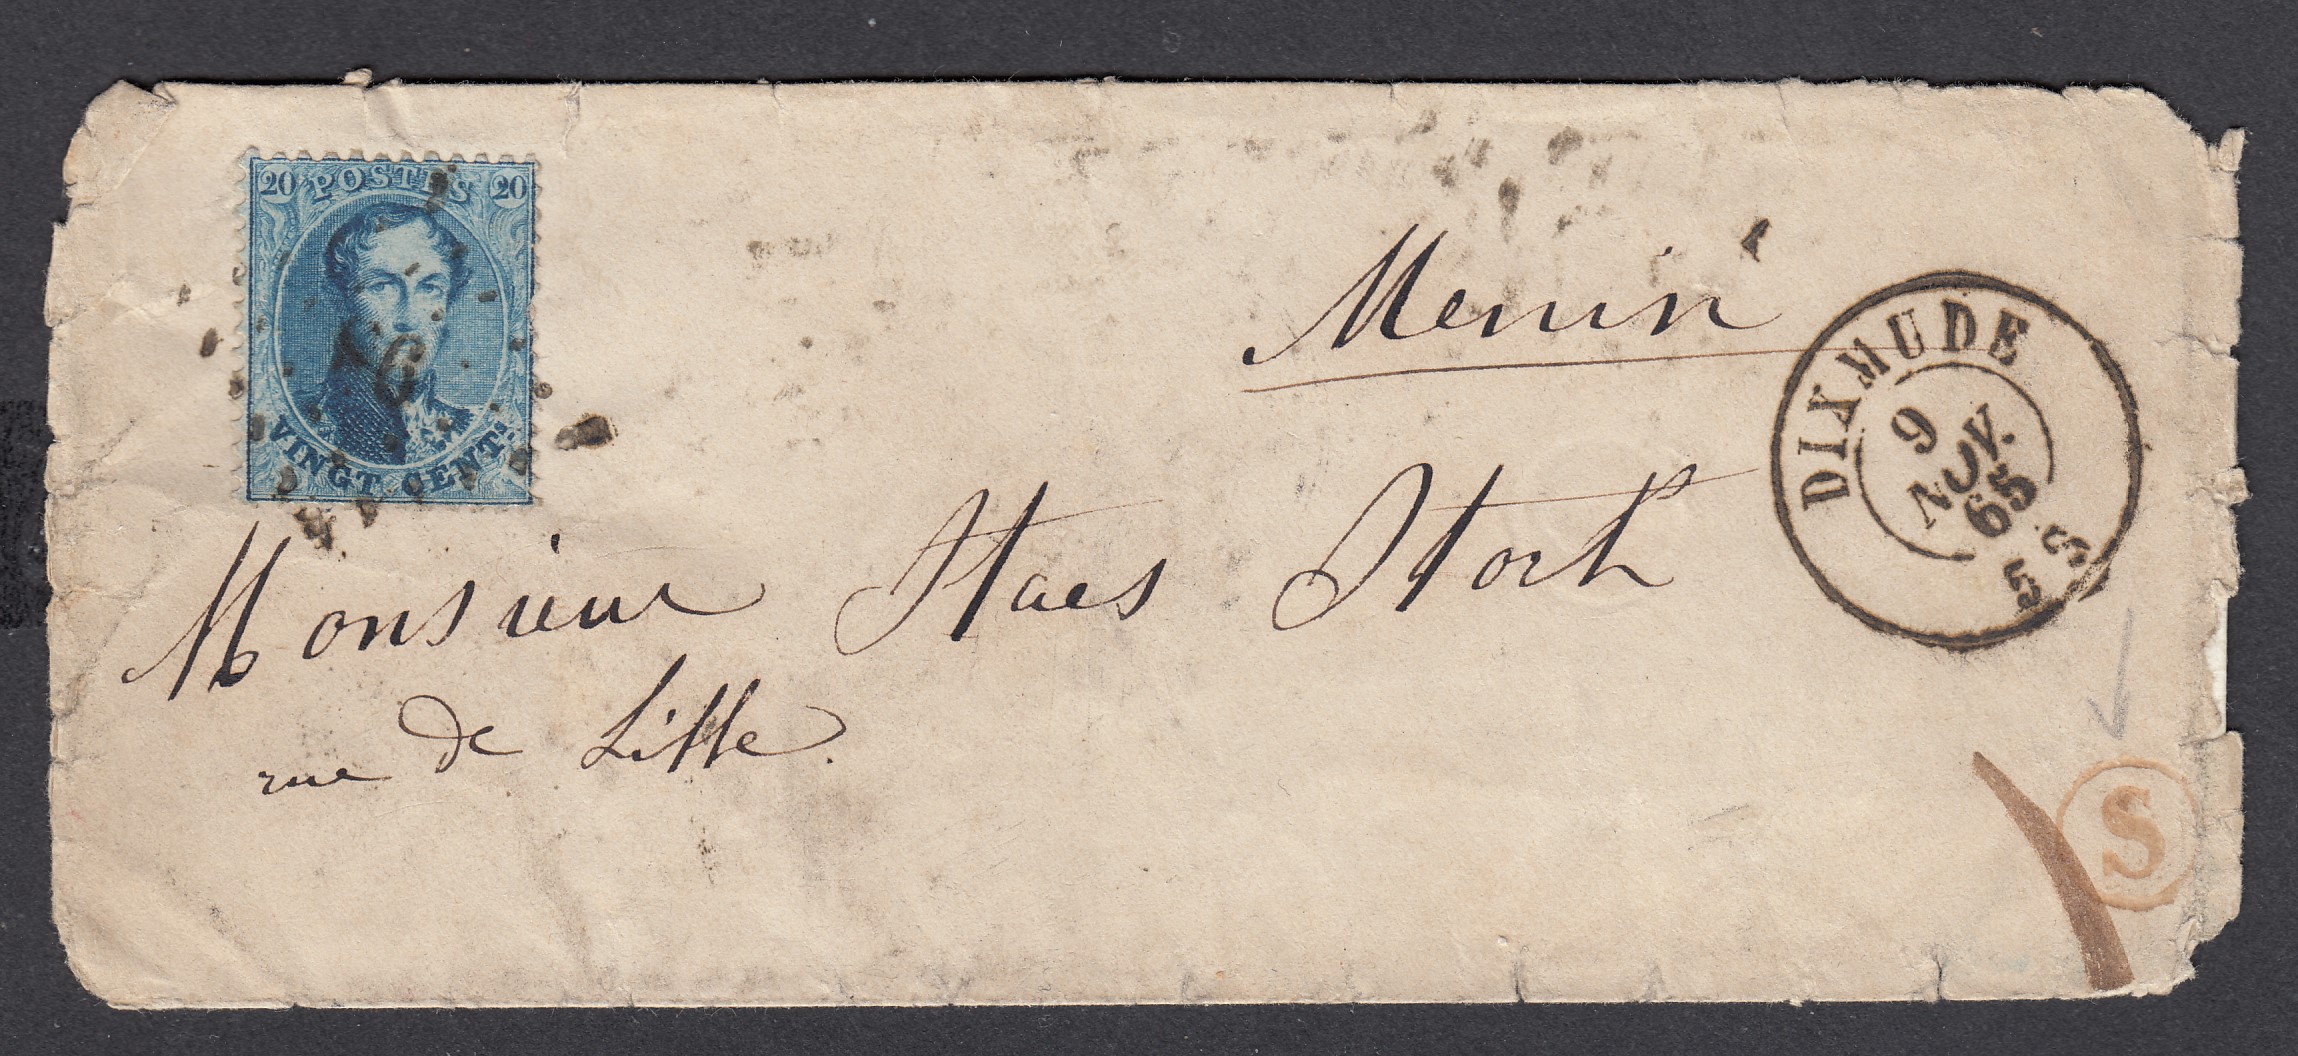 20 POSTES 20
VINGT CENTS
Menin
DIXMUDE
9
NOV.
65
5 S
Monsieur Staes Stork
rue de Lille.
S